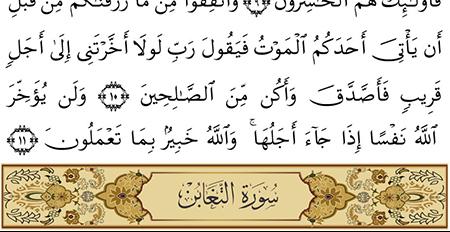 فَأُولَٰٓئِكَ هُمُ الْخَٰسِرُونَ ﴿٩﴾ وَأَنفِقُوا مِن مَّا رَزَقْنَٰكُم مِّن قَبْلِ
أَن يَأْتِىَ أَحَدَكُمُ الْمَوْتُ فَيَقُولَ رَبِّ لَوْلَآ أَخَّرْتَنِىٓ إِلَىٰٓ أَجَلٍ
قَرِيبٍ فَأَصَّدَّقَ وَأَكُن مِّنَ الصَّٰلِحِينَ ﴿١٠﴾ وَلَن يُؤَخِّرَ
اللَّهُ نَفْسًا إِذَا جَآءَ أَجَلُهَا ۚ وَاللَّهُ خَبِيرٌۢ بِمَا تَعْمَلُونَ ﴿١١﴾
سُورَةُ التَّغَابُنِ